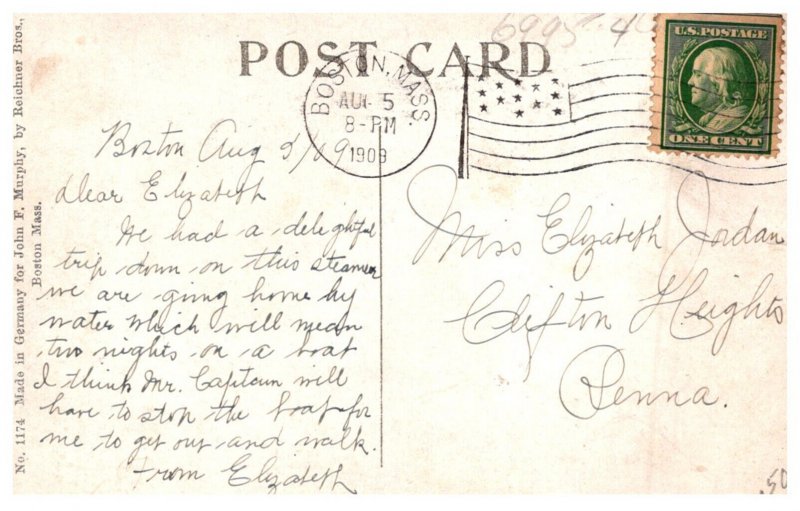 6995
POST CARD
BOSTON, MASS.
AUG 5
8-PM
1909
U.S. POSTAGE
ONE CENT
Boston Aug 5/09
Dear Elizabeth
We had a delightful
trip down on this steamer
we are going home by
water which will mean
two nights on a boat
I think Mr. Captain will
have to stop the boat for
me to get out and walk.
From Elizabeth
Miss Elizabeth Jordan
Clifton Heights
Penna.
No. 1174 Made in Germany for John F. Murphy, by Reichner Bros.,
Boston Mass.
.50